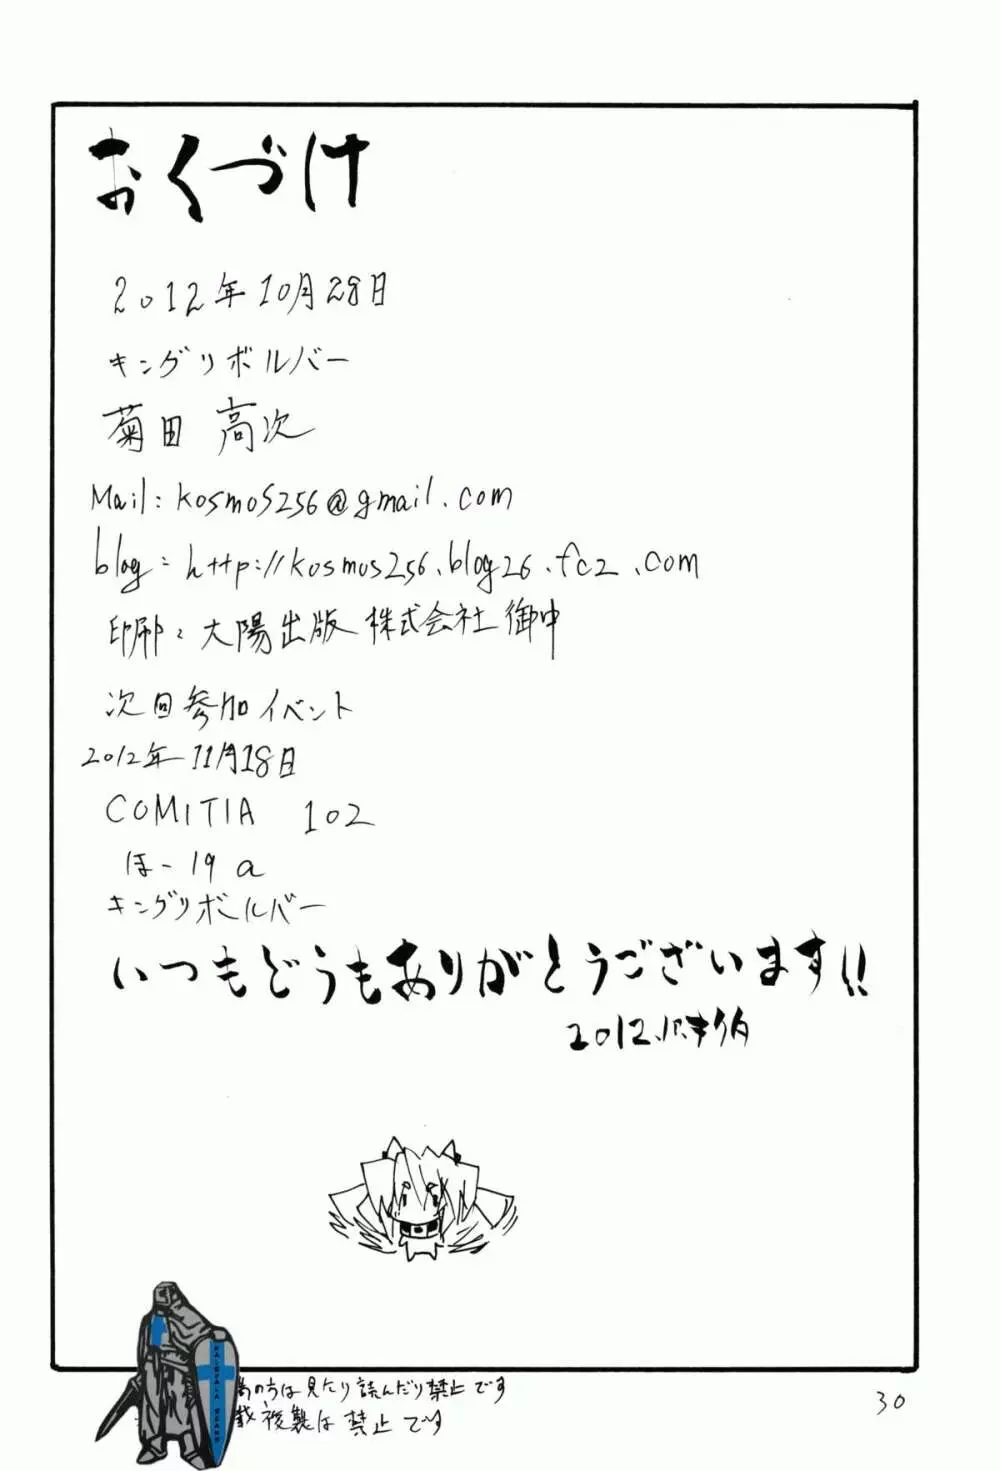 おくづけ
2012年10月28日
キングリボルバー
菊田 高次
Mail: kosmos256@gmail.com
blog: http://kosmos256.blog26.fc2.com
印刷: 大陽出版 株式会社 御中
次回参加イベント
2012年11月18日
COMITIA 102
ほ-19a
キングリボルバー
いつもどうもありがとうございます!!
2012.
の方は見たり読んだり禁止です
複製は禁止です
30